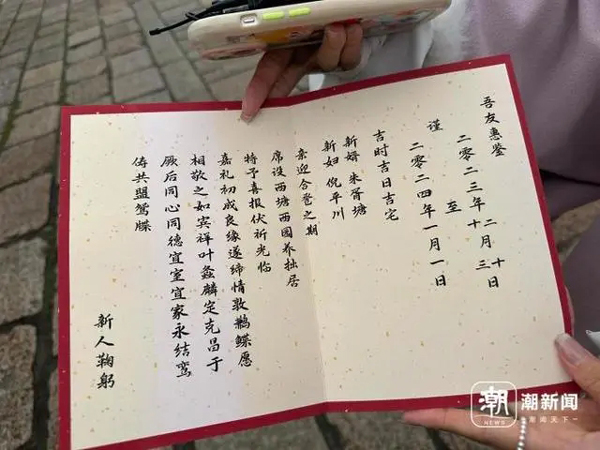 吾友惠鉴
二〇二三年十二月三十日
至
谨
二〇二四年一月一日
吉时吉日吉宅
新婿 朱胥塘
新妇 倪平川
亲迎合卺之期
席设西塘西园养拙居
特予喜报伏祈光临
嘉礼初成良缘遂缔情敦鹣鲽愿
相敬之如宾祥叶螽麟定克昌于
厥后同心同德宜室宜家永结鸾
俦共盟鸳牒
新人鞠躬
潮
NEWS
潮新闻